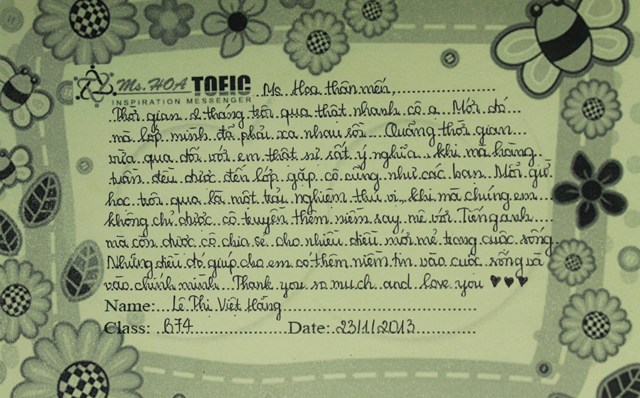 Ms. HOA TOEIC
INSPIRATION MESSENGER
Ms. Hoa thân mến,
Thời gian 2 tháng trôi qua thật nhanh cô ạ. Mới đó
mà lớp mình đã phải xa nhau rồi. Quãng thời gian
vừa qua đối với em thật sự rất ý nghĩa, khi mà hàng
tuần đều được đến lớp gặp cô cũng như các bạn. Mỗi giờ
học trôi qua là một trải nghiệm thú vị, khi mà chúng em
không chỉ được cô truyền thêm niềm say mê với Tiếng anh
mà còn được cô chia sẻ cho nhiều điều mới mẻ trong cuộc sống.
Những điều đó giúp cho em có thêm niềm tin vào cuộc sống và
vào chính mình. Thank you so much and love you ♥♥♥
Name: Lê Thị Việt Hằng
Class: B74 Date: 23/11/2013